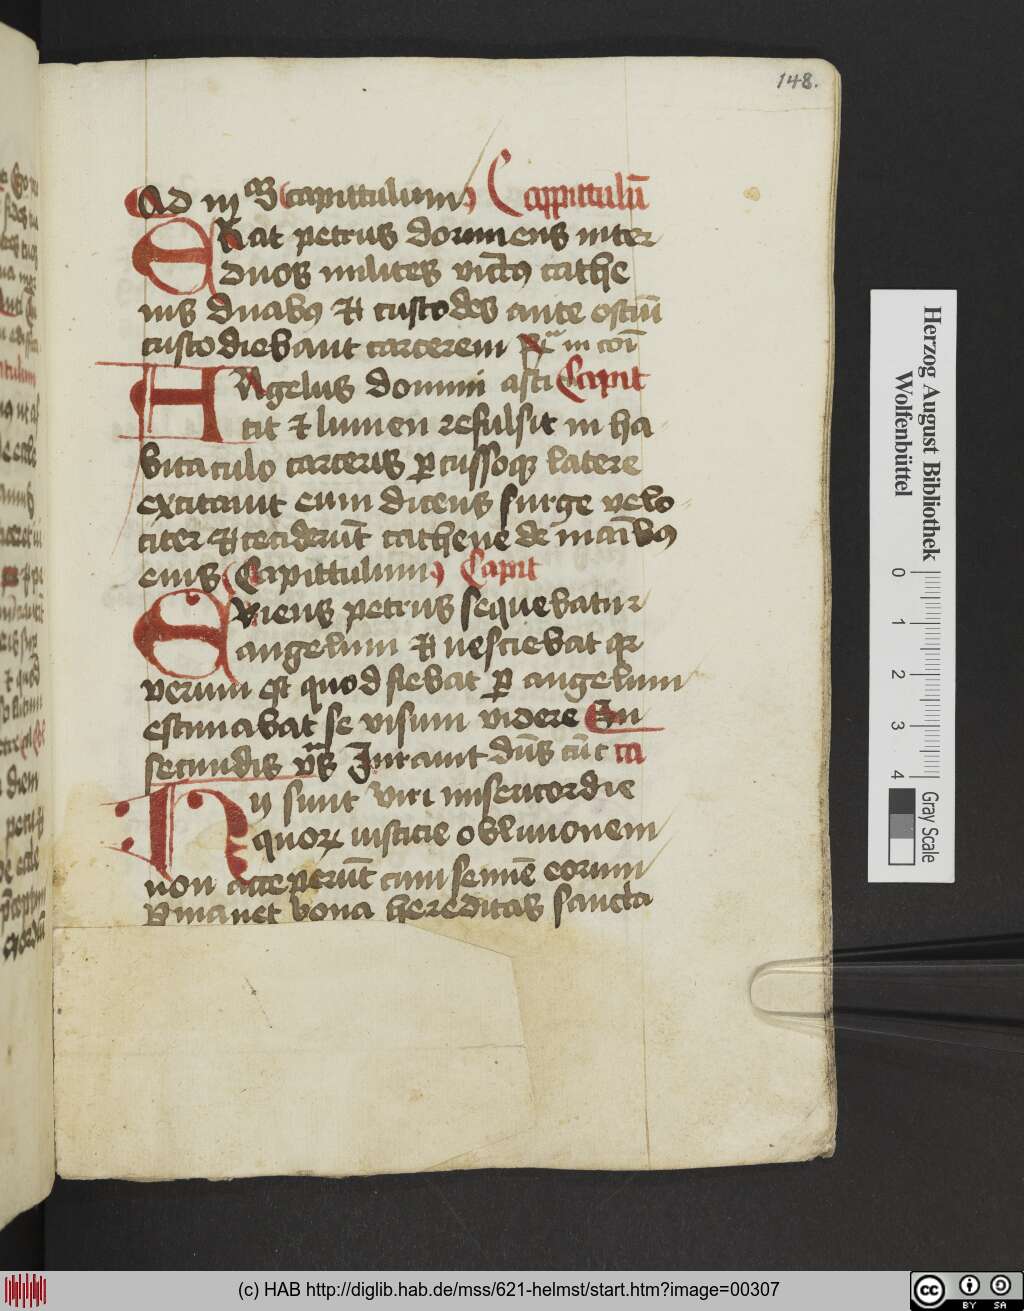 148.
Ad iij capittulum Cappittulū
ERat petrus dormiens inter
duos milites vinctꝰ cathe
nis duabꝰ et custodes ante ostiū
custodiebant carcerem in coī
ANgelus domini asti Capit
tit et lumen refulsit in ha
bitaculo carceris ꝑcussoqꝫ latere
excitavit eum dicens surge velo
citer et cecidert̄ cathene de manibꝰ
eius Capittulum Capit
EXiens petrus sequebatur
angelum et nesciebat qr
verum est quod fiebat ꝑ angelum
estimabat se visum videre In
secundis vs Iurauit dn̄s
HIj sunt viri misericordie
quoꝝ iusticie oblivionem
non acceperūt cum semīe eorum
ꝑmanet bona hereditas sancta
Herzog August Bibliothek
Wolfenbüttel
0 1 2 3 4
Gray Scale
(c) HAB http://diglib.hab.de/mss/621-helmst/start.htm?image=00307
cc BY SA